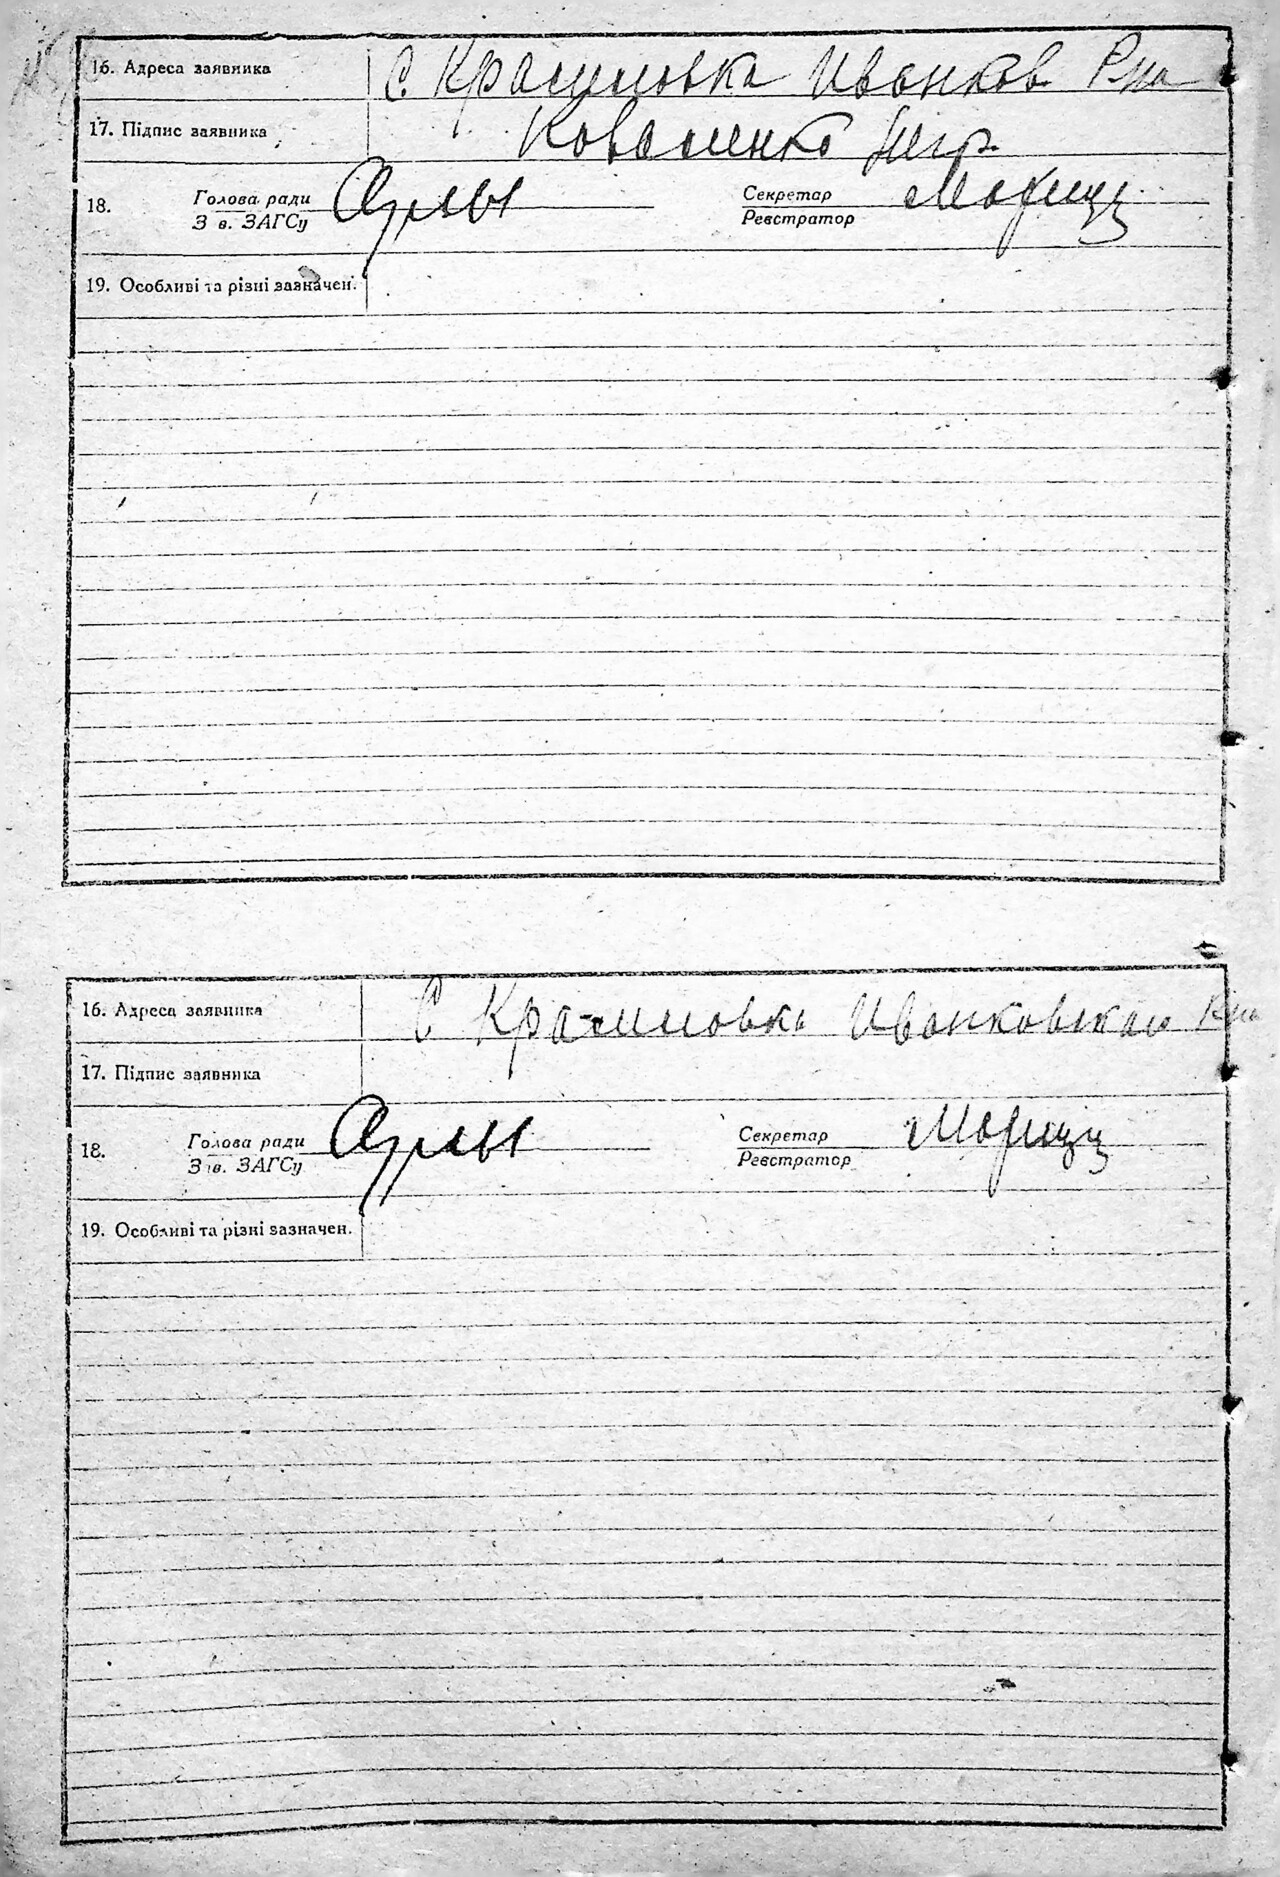 16. Адреса заявника С. Красиловка Иванков. Р-на
17. Підпис заявника Коваленко
18. Голова ради Секретар
З в. ЗАГСу Реєстратор
19. Особливі та різні зазначен.
16. Адреса заявника С Красиловка Иванковскаго Р-на
17. Підпис заявника
18. Голова ради Секретар
З в. ЗАГСу Реєстратор
19. Особливі та різні зазначен.